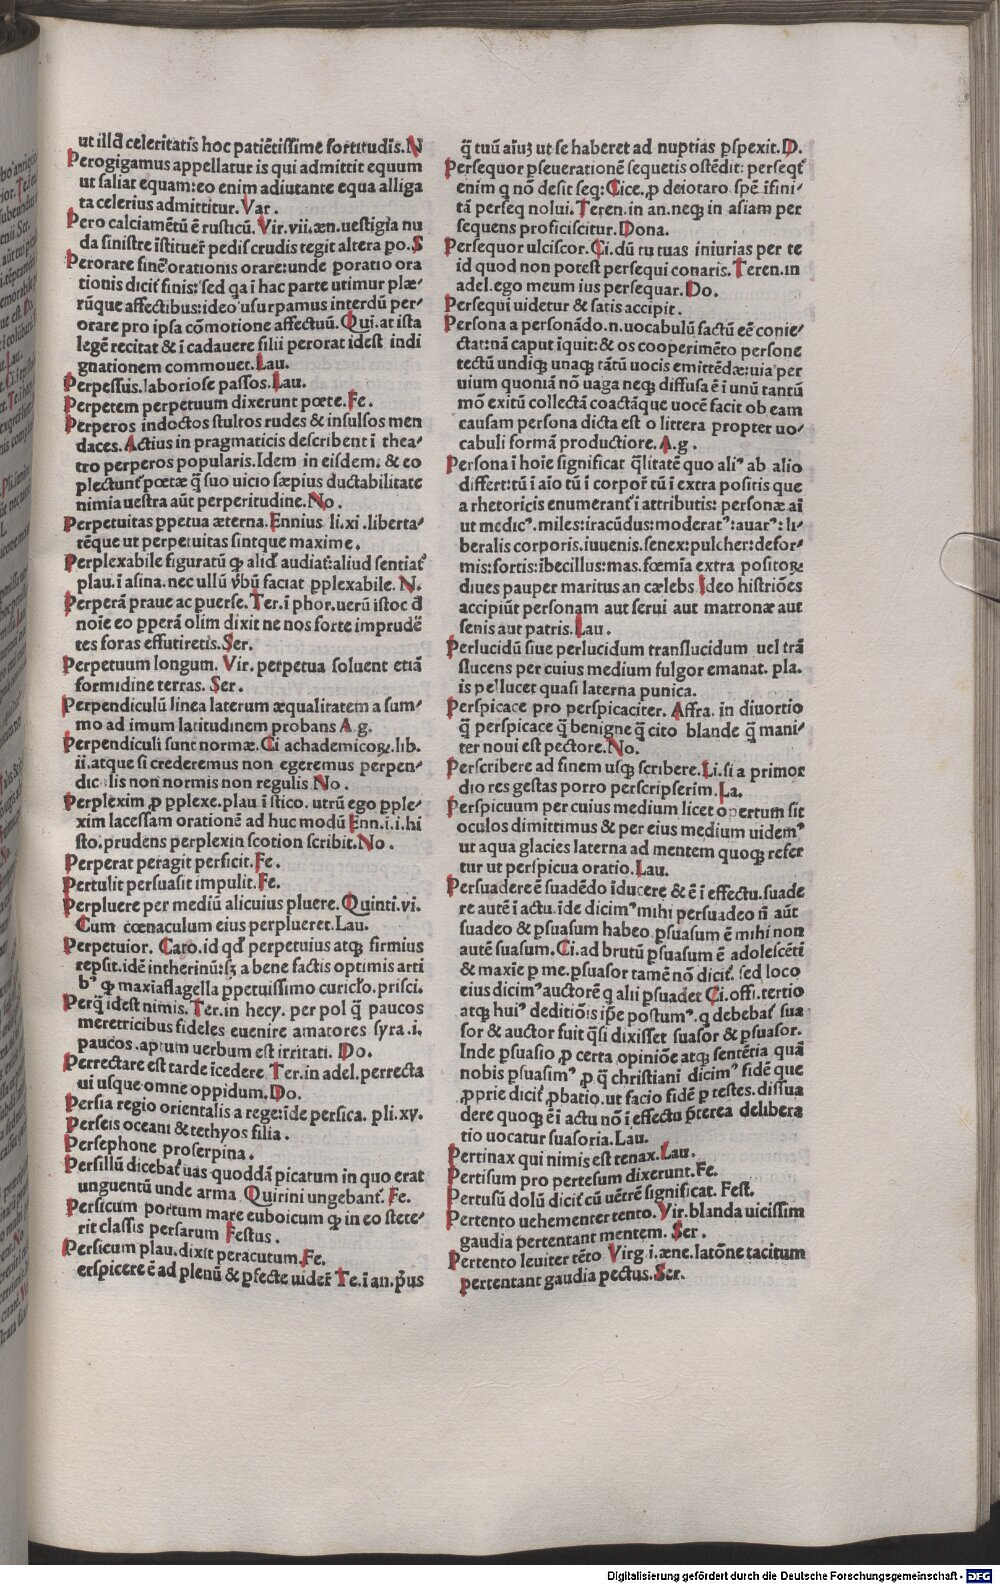 ut illđ celeritatis hoc patiētissime fortitudīs.N
Perogigamus appellatur is qui admittit equum
ut saliat equam:eo enim adiutante equa alliga
ta celerius admittitur.Var.
Pero calciamētū ē rusticū.Vir.vii.æn.uestigia nu
da sinistre īstituer̄ pedis crudis tegit altera po.S
Perorare finē orationis orare:unde poratio ora
tionis dicit̄ finis:sed ga i hac parte utimur plæ⸗
rūque affectibus:ideo usurpamus interdū per⸗
orare pro ipsa cōmotione affectuū.Qui.at ista
legē recitat & i cadauere filii perorat idest indi
gnationem commouet.Lau.
Perpessus.laboriose passos.Lau.
Perpetem perpetuum dixerunt poete.Fe.
Perperos indoctos stultos rudes & insulsos men
daces.Actius in pragmaticis describent i thea⸗
tro perperos popularis.Idem in eisdem.& eo
plectunt̄ poetæ q̄ suo uicio sæpius ductabilitate
nimia uestra aūt perperitudine.No.
Perpetuitas ꝑpetua æterna.Ennius li.xi.liberta⸗
tēque ut perpetuitas sintque maxime.
Perplexabile figuratū ꝙ alid̄ audiat̄:aliud sentiat̄
plau.ī asina.nec ullū v̄bū faciat ꝑplexabile.N.
Perperā praue ac ꝑuerse.Ter.ī phor.uerū istoc đ
noīe eo ꝑperā olim dixit ne nos forte imprudē
tes foras effutiretis.Ser.
Perpetuum longum.Vir.perpetua soluent etiā
formidine terras.Ser.
Perpendiculū linea laterum æqualitatem a sum⸗
mo ad imum latitudinem probans A g.
Perpendiculi sunt normæ.Ci achademicoꝝ.lib.
ii.atque si crederemus non egeremus perpen⸗
dic lis non normis non regulis No.
Perplexim ꝓ ꝑplexe.plau ī stico.utrū ego ꝑple⸗
xim lacessam orationē ad huc modū Enn.i.i.hi
sto.prudens perplexin scotion scribit.No.
Perperat peragit perficit.Fe.
Pertulit persuasit impulit.Fe.
Perpluere per mediū alicuius pluere.Quinti.vi.
Cum cœnaculum eius perplueret.Lau.
Perpetuior.Cato.id qđ perpetuius atqꝫ firmius
repsit.idē intherinū:sꝫ a bene factis optimis arti
bꝰ ꝙ maxia flagella ꝑpetuissimo curic̄lo.prisci.
Perq̄ idest nimis.Ter.in hecy.per pol q̄ paucos
meretricibus fideles euenire amatores syra.i.
paucos.aptum uerbum est irritati. Do.
Perrectare est tarde īcedere.Ter.in adel.perrecta
ui usque omne oppidum.Do.
Persia regio orientalis a rege:īde persica.pli.xv.
Perseis oceani & tethyos filia.
Persephone proserpina.
Persillū dicebat̄ uas quoddā picatum in quo erat
unguentū unde arma Quirini ungebant̄.Fe.
Persicum portum mare euboicum ꝙ in eo stete⸗
rit classis persarum Festus.
Persicum plau.dixit peracutum.Fe.
erspicere ē ad plenū & ꝑfecte uider̄ Te.ī an.p̄us
q̄ tuū aīuꝫ ut se haberet ad nuptias ꝑspexit.D.
Persequor ꝑseuerationē sequetis ostēdit:perseqt̄
enim q nō desit seq:Cice.ꝓ deiotaro.spē īfini⸗
tā perseq nolui.Teren.in an.neqꝫ in asiam per
sequens proficiscitur.Dona.
Persequor ulciscor.Ci.dū tu tuas iniurias per te
id quod non potest persequi conaris.Teren.in
adel.ego meum ius persequar.Do.
Persequi uidetur & satis accipit.
Persona a personādo.n.uocabulū factū eē coniē⸗
ctat:nā caput īquit:& os cooperimēto persone
tectū undiqꝫ unaqꝫ tātū uocis emittēdæ:uia per
uium quoniā nō uaga neqꝫ diffusa ē ī unū tantū
mō exitū collectā coactāque uocē facit ob eam
causam persona dicta est o littera propter uo⸗
cabuli formā productiore.A.g.
Persona ī hoīe significat q̄litatē quo aliꝰ ab alio
differt:tū ī aīo tū ī corpor̄ tū ī extra positis que
a rhetoricis enumerant̄ ī attributis:personæ aī
ut medicꝰ.miles:iracūdus:moderatꝰ:auarꝰ:li⸗
beralis corporis.iuuenis.senex:pulcher:defor⸗
mis:fortis:ībecillus:mas.fœmīa extra positoꝝ
diues pauper maritus an cælebs Ideo histriōes
accipiūt personam aut serui aut matronæ aut
senis aut patris.Lau.
Perlucidū siue perlucidum translucidum uel trā
slucens per cuius medium fulgor emanat. pla.
is pellucet quasi laterna punica.
Perspicace pro perspicaciter. Affra. in diuortio
q̄ perspicace q̄ benigne q̄ cito blande q̄ mani⸗
ter noui est pectore.No.
Perscribere ad finem usqꝫ scribere.Li.si a primor
dio res gestas porro perscripserim.La.
Perspicuum per cuius medium licet opertum sit
oculos dimittimus & per eius medium uidemꝰ
ut aqua glacies laterna ad mentem quoqꝫ refer
tur ut perspicua oratio.Lau.
Persuadere ē suadēdo īducere & ē ī effectu.suade
re autē ī actu.īde dicimꝰ mihi persuadeo n̄ aūt
suadeo & ꝑsuasum habeo ꝑsuasum ē mihi non
autē suasum.Ci.ad brutū ꝑsuasum ē adolescēti
& maxīe ꝑ me.ꝑsuasor tamē nō dicit̄. sed loco
eius dicimꝰ auctorē q alii ꝑsuadet Ci.offi.tertio
atqꝫ huiꝰ deditiōis iꝑe postumꝰ.q debebat̄ sua
sor & auctor fuit q̄si dixisset suasor & ꝑsuasor.
Inde ꝑsuasio ꝓ certa opiniōe atqꝫ sentētia quā
nobis ꝑsuasimꝰ ꝓ q̄ christiani dicimꝰ fidē que
ꝓprie dicit̄ ꝓbatio.ut facio fidē ꝑ testes.dissua
dere quoqꝫ ē ī actu nō ī effectu p̄terea delibera
tio uocatur suasoria.Lau.
Pertinax qui nimis est tenax.Lau.
Pertisum pro pertesum dixerunt.Fe.
Pertusū dolū dicit̄ cū uētrē significat. Fest.
Pertento uehementer tento.Vir.blanda uicissim
gaudia pertentant mentem. Ser.
Pertento leuiter tēto Virg.i.æne.latōne tacitum
pertentant gaudia pectus.Ser.
Digitalisierung gefördert durch die Deutsche Forschungsgemeinschaft - DFG